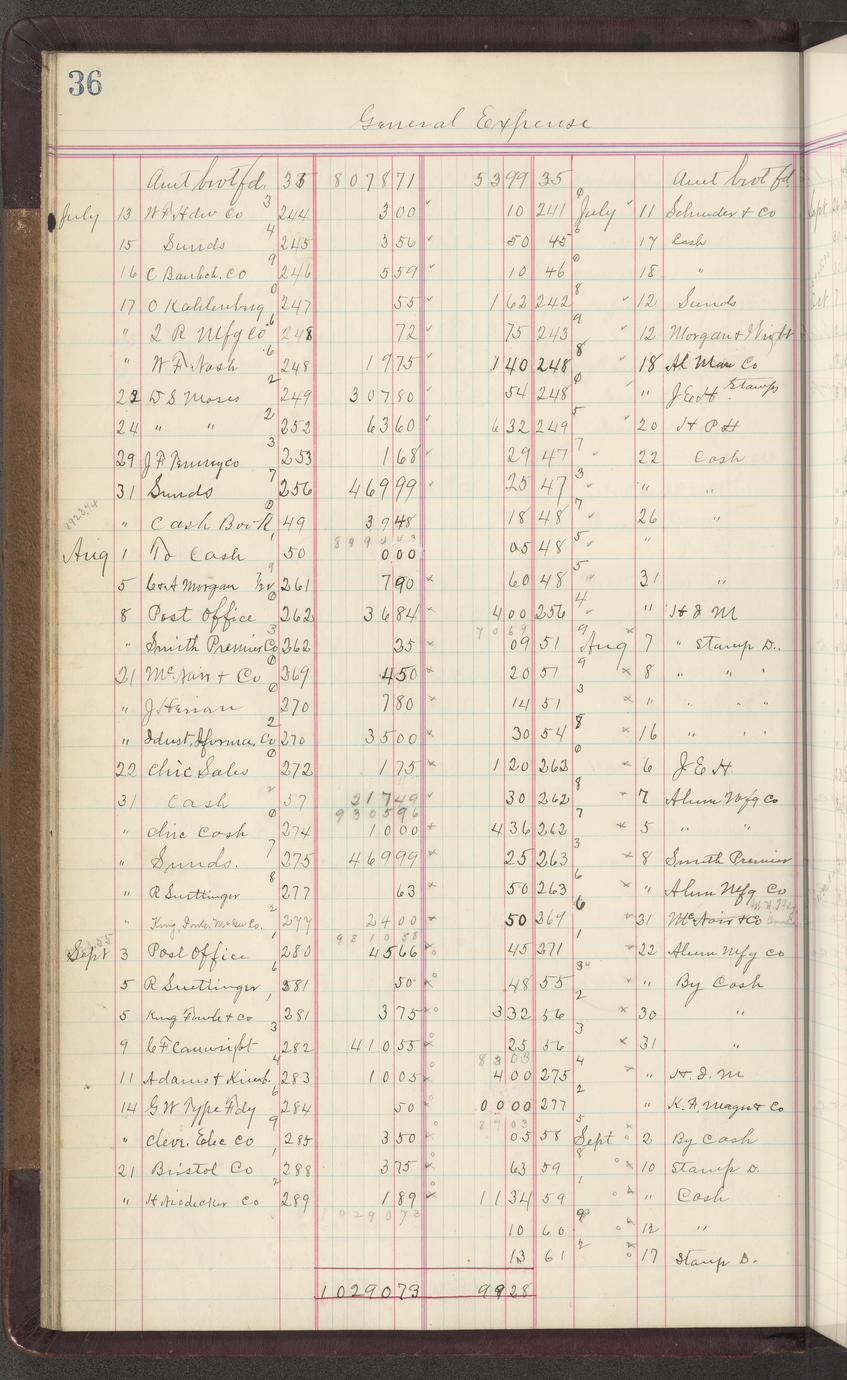 36
General Expense
Amt brot fd. 35 8078 71 53 99 35 Amt brot fd
July 13 Co 244 3 00 10 241 July 11 Schruder & Co
15 Sunds 245 3 56 50 45 17 Cash
16 C Co 246 5 59 10 46 18 "
17 O Kahlenburg 247 55 1 62 242 12 Sunds
" 2 R Mfg Co 248 72 75 243 12 Morgan & Wright
" W F Nash 248 19 75 1 40 248 18 Al Man Co
22 W S Moses 249 307 80 54 248 " J E H Stamps
24 " " 252 63 60 6 32 249 20 H P H
29 J F 253 1 68 29 47 22 Cash
31 Sunds 256 469 99 25 47 " "
" Cash Book 49 39 48 18 48 26 "
8994 43
Aug 1 To Cash 50 0 00 05 48 " "
5 C & A Morgan 261 7 90 60 48 31 "
8 Post Office 262 36 84 4 00 256 " H J M
70 69
" Smith Premier Co 262 35 09 51 Aug 7 " Stamp D.
21 McNair & Co 269 4 50 20 51 8 " " "
" J 270 7 80 14 51 " " " "
" Co 270 35 00 30 54 16 " " "
22 Chic Sales 272 1 75 1 20 263 6 J E H
31 Cash 57 217 49 30 262 7 Alum Mfg Co
9305 96
" Chic Cash 274 10 00 4 36 262 5 " "
" Sunds. 275 469 99 25 263 8 Smith Premier
" R Suettinger 277 63 50 263 " Alum Mfg Co
" King, Fowle, McGee Co. 277 24 00 50 264 31 McNair & Co
9810 58
Sept 3 Post Office 280 45 66 45 271 22 Alum Mfg Co
5 R Suettinger 281 50 48 55 " By Cash
5 King Fowle & Co 281 3 75 3 32 56 30 "
9 C F Canwright 282 410 55 25 56 31 "
83 03
11 Adams & 283 10 05 4 00 275 " H. J. M
14 G W Type Fdy 284 50 00 00 277 " K. F. Co
87 03
" Clevr. Elec Co 285 3 50 05 58 Sept 2 By Cash
21 Bristol Co 288 3 75 63 59 10 Stamp D.
" H Niedecker Co 289 1 89 11 34 59 " Cash
10290 73
10 60 12 "
13 61 17 Stamp D.
10290 73 99 28